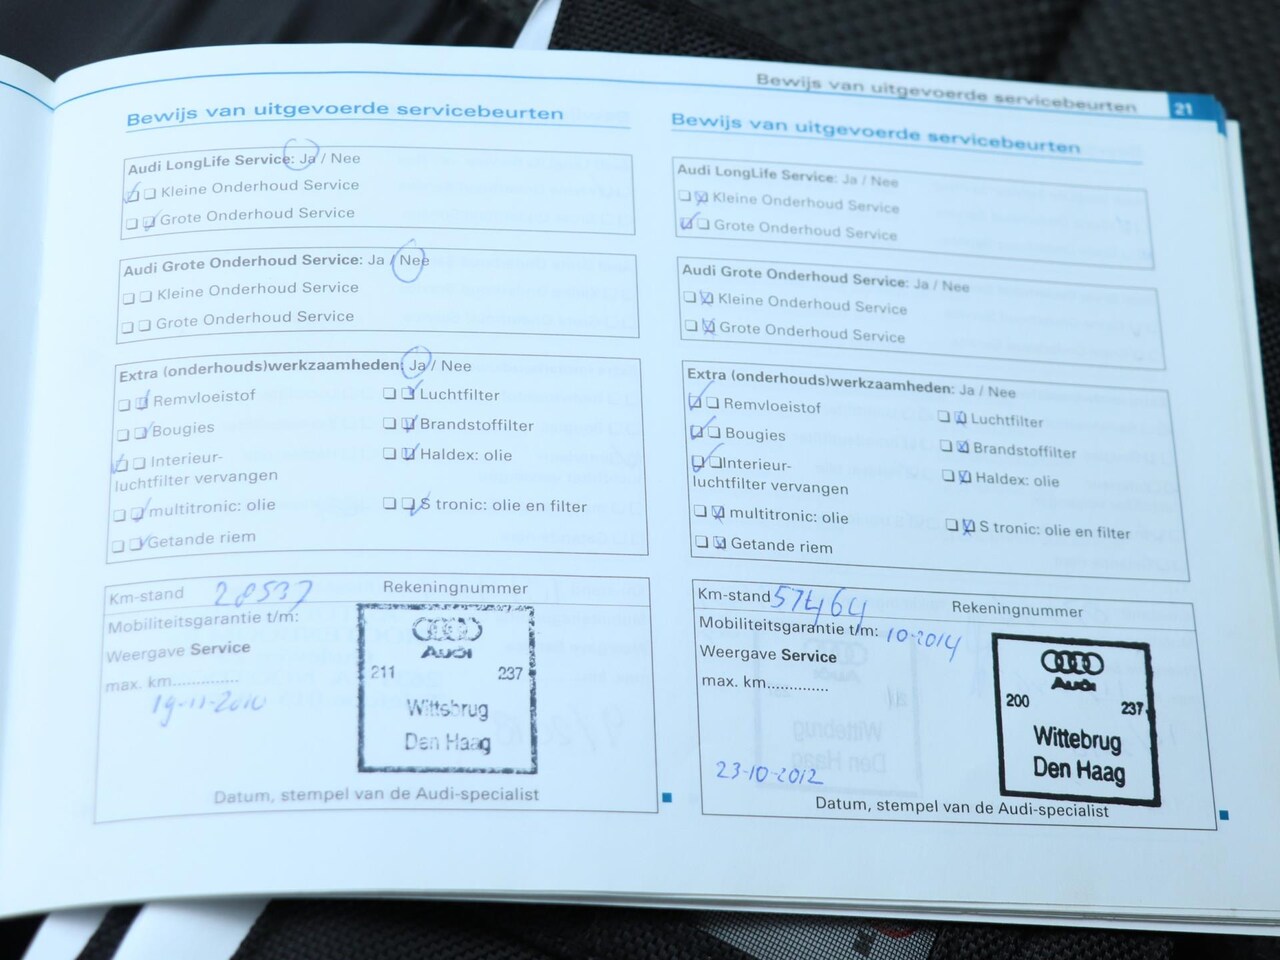 Bewijs van uitgevoerde servicebeurten 21
Bewijs van uitgevoerde servicebeurten
Audi LongLife Service: Ja / Nee
Kleine Onderhoud Service
Grote Onderhoud Service
Audi Grote Onderhoud Service: Ja / Nee
Kleine Onderhoud Service
Grote Onderhoud Service
Extra (onderhouds)werkzaamheden: Ja / Nee
Remvloeistof
Luchtfilter
Bougies
Brandstoffilter
Interieur-
luchtfilter vervangen
Haldex: olie
multitronic: olie
S tronic: olie en filter
Getande riem
Km-stand 28537
Rekeningnummer
Mobiliteitsgarantie t/m:
Weergave Service
max. km..............
19-11-2010
Audi
211 237
Wittebrug
Den Haag
Datum, stempel van de Audi-specialist
Bewijs van uitgevoerde servicebeurten
Audi LongLife Service: Ja / Nee
Kleine Onderhoud Service
Grote Onderhoud Service
Audi Grote Onderhoud Service: Ja / Nee
Kleine Onderhoud Service
Grote Onderhoud Service
Extra (onderhouds)werkzaamheden: Ja / Nee
Remvloeistof
Luchtfilter
Bougies
Brandstoffilter
Interieur-
luchtfilter vervangen
Haldex: olie
multitronic: olie
S tronic: olie en filter
Getande riem
Km-stand 57464
Rekeningnummer
Mobiliteitsgarantie t/m: 10-2014
Weergave Service
max. km.............
23-10-2012
Audi
200 237
Wittebrug
Den Haag
Datum, stempel van de Audi-specialist